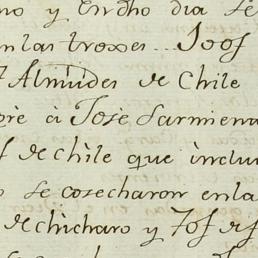 no y en dho dia se
en las troxes... 100f
Almudes de Chile
pre à Jose Sarmien
f de chile que inclu
o se cosecharon en la
de chicharo y 70f